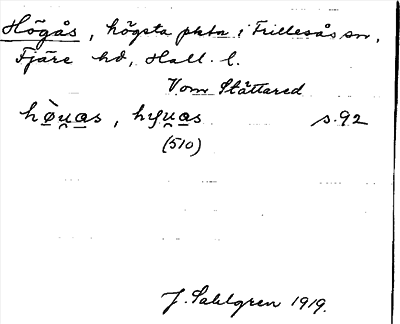 Högås, högsta pktn i Frillesås sn,
Fjäre hd, Hall. l.
Vom Stättared
s. 92
(510)
J. Sahlgren 1919.